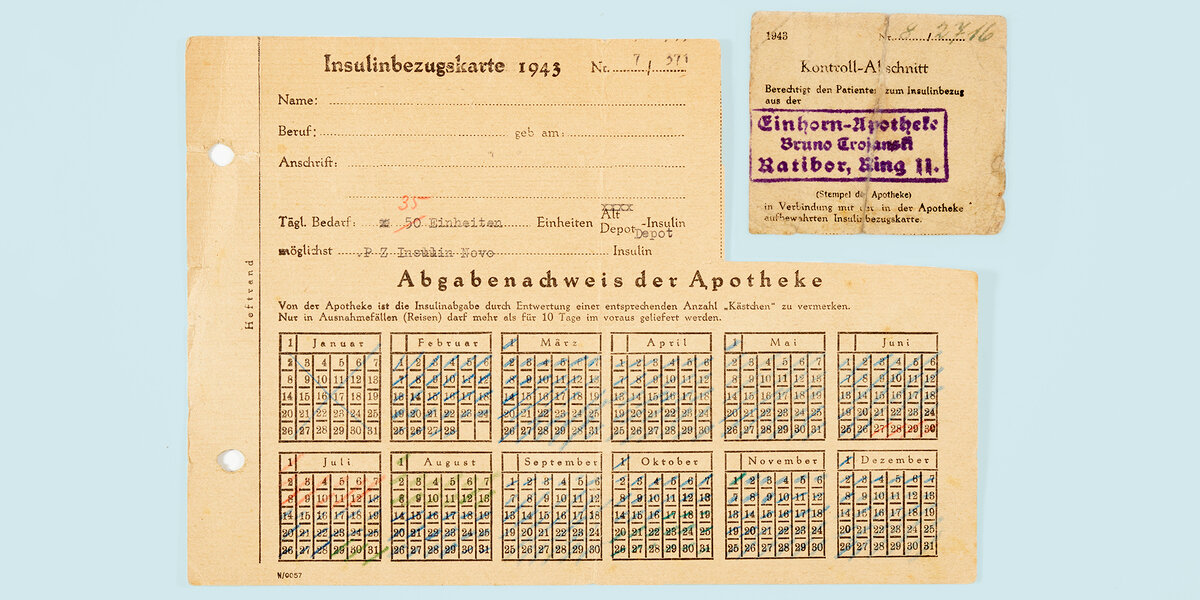 Insulinbezugskarte 1943 Nr. 7 / 571
Name:
Beruf: geb am:
Anschrift:
35
Tägl. Bedarf: 50 Einheiten Einheiten xxxx Alt
Depot -Insulin
Depot
möglichst P Z Insulin Novo Insulin
Abgabenachweis der Apotheke
Von der Apotheke ist die Insulinabgabe durch Entwertung einer entsprechenden Anzahl „Kästchen“ zu vermerken.
Nur in Ausnahmefällen (Reisen) darf mehr als für 10 Tage im voraus geliefert werden.
Heftrand
1 Januar Februar 1 März April 1 Mai Juni
2 3 4 5 6 7 1 2 3 4 5 6 2 3 4 5 6 7 1 2 3 4 5 6 2 3 4 5 6 7 1 2 3 4 5 6
8 9 10 11 12 13 7 8 9 10 11 12 8 9 10 11 12 13 7 8 9 10 11 12 8 9 10 11 12 13 7 8 9 10 11 12
14 15 16 17 18 19 13 14 15 16 17 18 14 15 16 17 18 19 13 14 15 16 17 18 14 15 16 17 18 19 13 14 15 16 17 18
20 21 22 23 24 25 19 20 21 22 23 24 20 21 22 23 24 25 19 20 21 22 23 24 20 21 22 23 24 25 19 20 21 22 23 24
26 27 28 29 30 31 25 26 27 28 26 27 28 29 30 31 25 26 27 28 29 30 26 27 28 29 30 31 25 26 27 28 29 30
1 Juli 1 August September 1 Oktober November 1 Dezember
2 3 4 5 6 7 2 3 4 5 6 7 1 2 3 4 5 6 2 3 4 5 6 7 1 2 3 4 5 6 2 3 4 5 6 7
8 9 10 11 12 13 8 9 10 11 12 13 7 8 9 10 11 12 8 9 10 11 12 13 7 8 9 10 11 12 8 9 10 11 12 13
14 15 16 17 18 19 14 15 16 17 18 19 13 14 15 16 17 18 14 15 16 17 18 19 13 14 15 16 17 18 14 15 16 17 18 19
20 21 22 23 24 25 20 21 22 23 24 25 19 20 21 22 23 24 20 21 22 23 24 25 19 20 21 22 23 24 20 21 22 23 24 25
26 27 28 29 30 31 26 27 28 29 30 31 25 26 27 28 29 30 26 27 28 29 30 31 25 26 27 28 29 30 26 27 28 29 30 31
N/0057
1943 Nr. / 2716
Kontroll-Abschnitt
Berechtigt den Patienten zum Insulinbezug
aus der
Einhorn-Apotheke
Bruno Trojanski
Ratibor, Ring 11.
(Stempel der Apotheke)
in Verbindung mit der in der Apotheke
aufbewahrten Insulinbezugskarte.